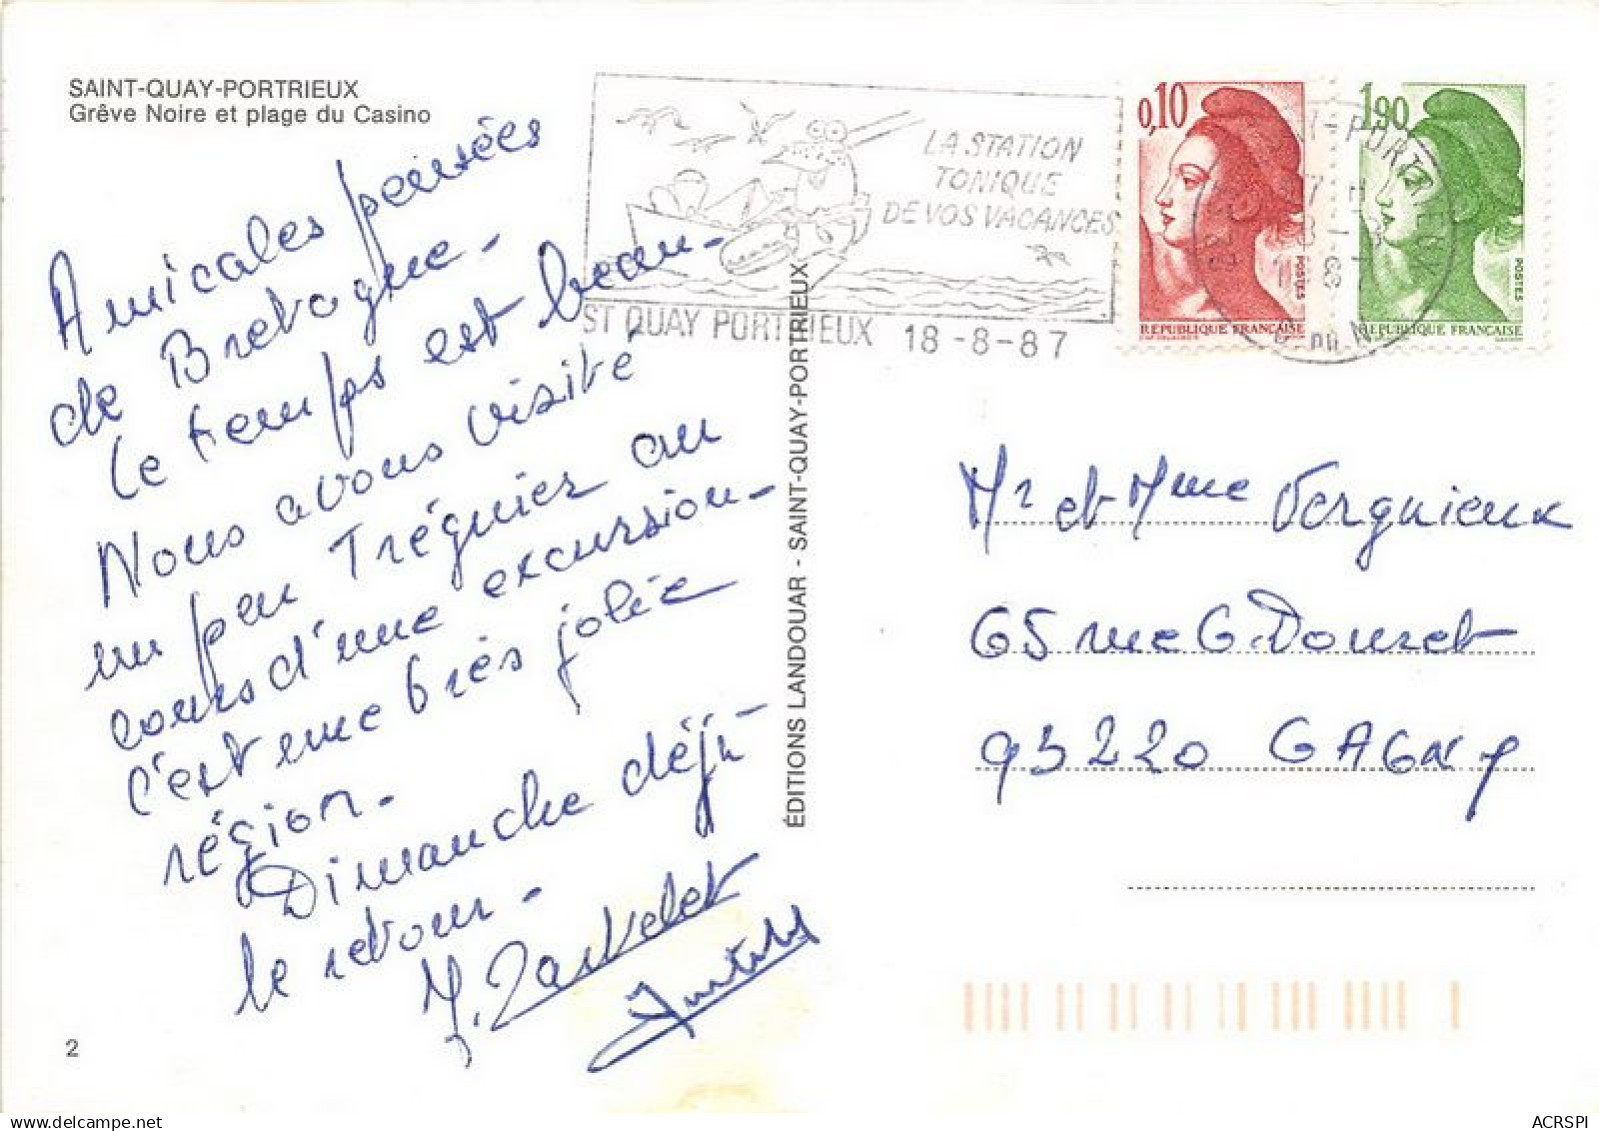 SAINT-QUAY-PORTRIEUX
Grêve Noire et plage du Casino
Amicales pensées
de Bretagne -
Le temps est beau -
Nous avons visité
un peu Tréguier au
cours d'une excursion -
c'est une très jolie
région -
Dimanche déjà
le retour -
2
LA STATION
TONIQUE
DE VOS VACANCES
ST QUAY PORTRIEUX 18-8-87
ÉDITIONS LANDOUAR - SAINT-QUAY-PORTRIEUX
0,10
POSTES
REPUBLIQUE FRANÇAISE
1,90
POSTES
REPUBLIQUE FRANÇAISE
Mr et Mme Vergnieux
65 rue G. Douret
93220 GAGNY
ACRSPI